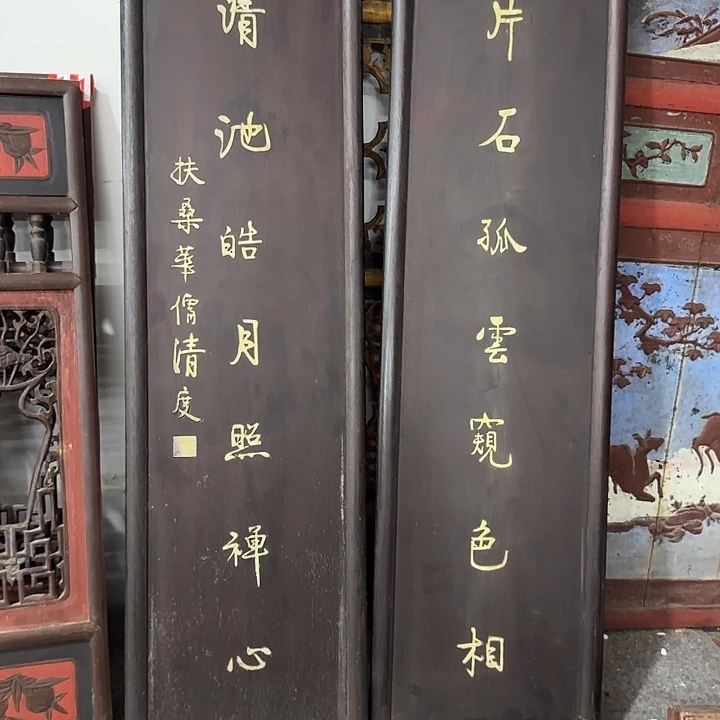 片石孤雲窺色相
清池皓月照禪心
扶桑華儒清度